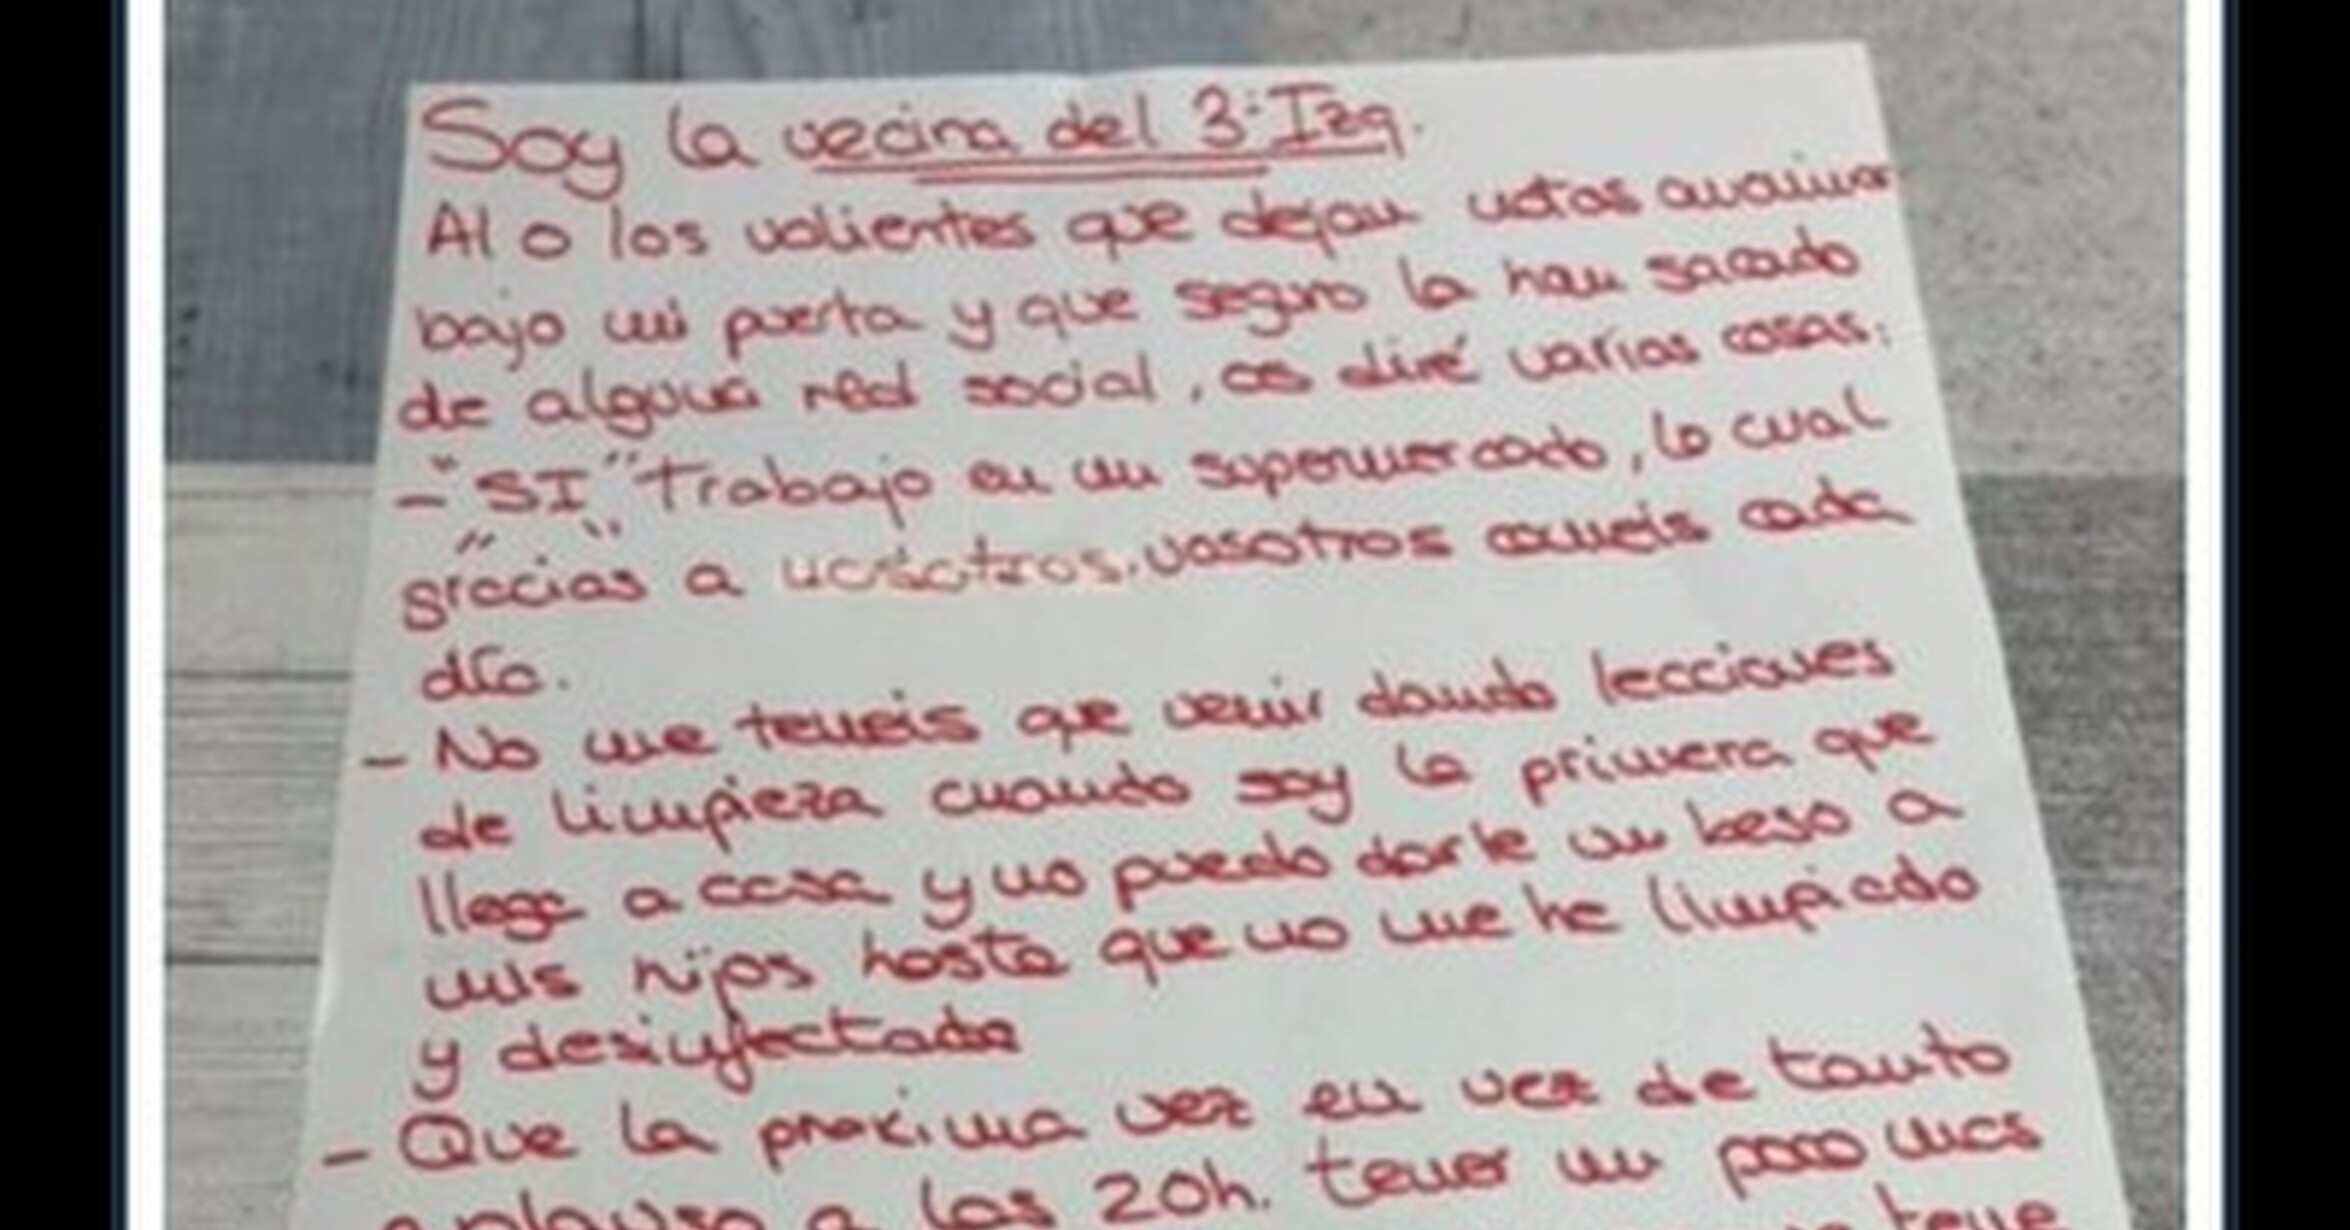 Soy la vecina del 3º Izq.
Al o los valientes que dejan notas
bajo mi puerta y que seguro la han sacado
de alguna red social, os diré varias cosas:
- "SI" Trabajo en un supermercado, lo cual
"gracias" a nosotros, vosotros comeis cada
día.
- No me teneis que venir dando lecciones
de limpieza cuando soy la primera que
llega a casa y no puedo darle un beso a
mis hijos hasta que no me he limpiado
y desinfectado
- Que la proxima vez en vez de tanto
aplauso a las 20h. tener un poco mas